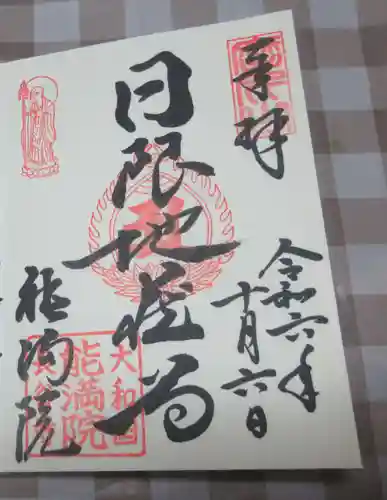 奉拝
令和六年
十月六日
日限地蔵尊
能満院
大和国
能満院
長谷寺